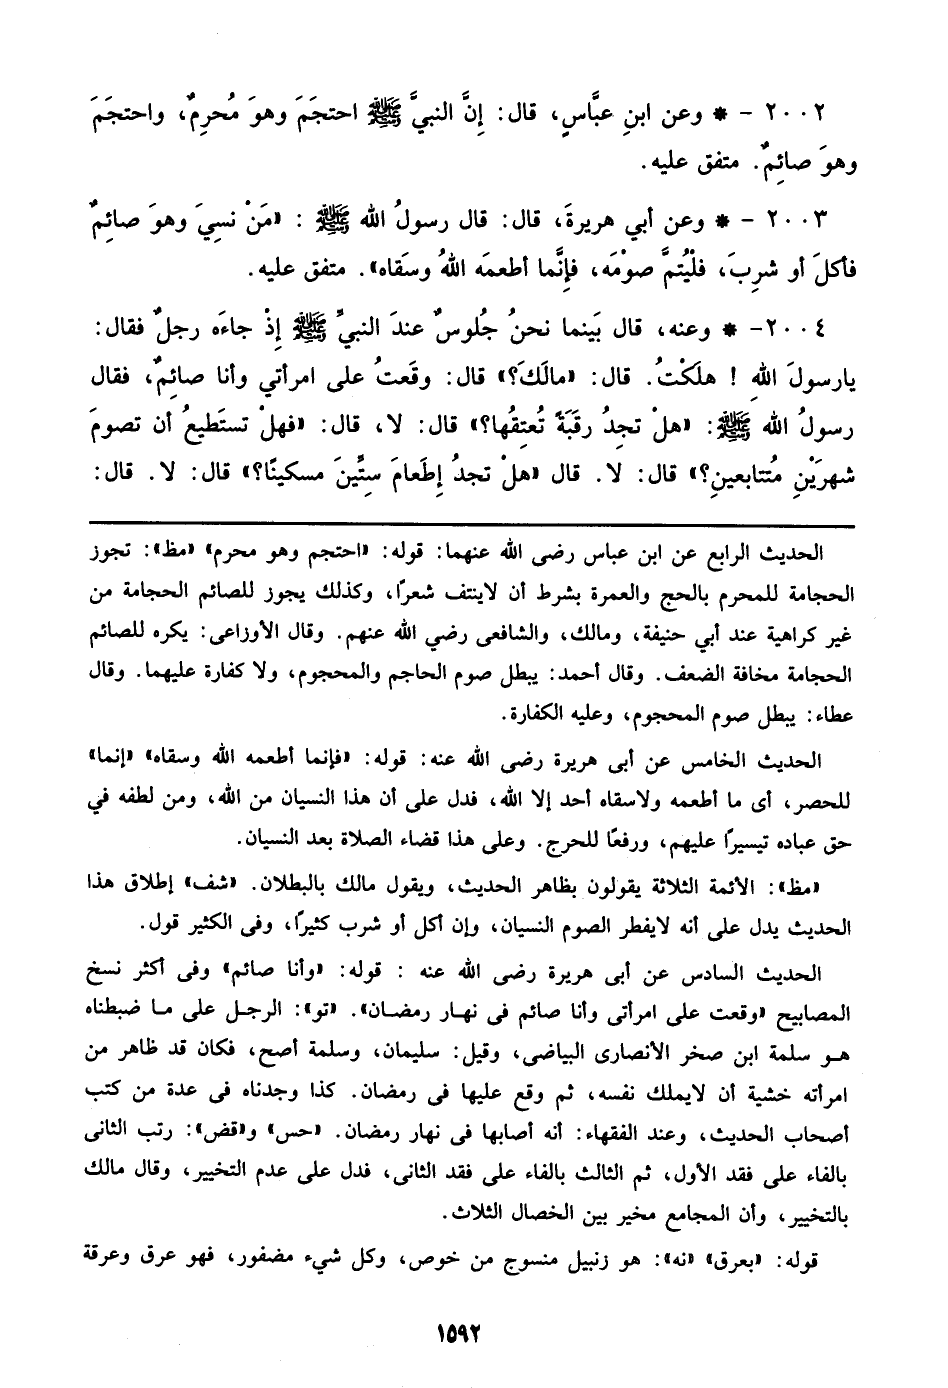 ٢٠٠٢ - * وعن ابنِ عبَّاسٍ، قال: إنَّ النبيَّ ﷺ احتجَمَ وهوَ مُحرِمٌ، واحتجَمَ
وهوَ صائِمٌ. متفق عليه.
٢٠٠٣ - * وعن أبي هريرةَ، قال: قال رسولُ الله ﷺ : «مَنْ نسيَ وهوَ صائِمٌ
فأكلَ أو شرِبَ، فلْيُتمَّ صوْمَه، فإنَّما أطعمَه اللهُ وسَقاه». متفق عليه.
٢٠٠٤- * وعنه، قال بَينما نحنُ جُلوسٌ عندَ النبيِّ ﷺ إذْ جاءَه رجلٌ فقال:
يارسولَ اللهِ ! هلَكْتُ. قال: «مالَكَ؟» قال: وقَعتُ على امرأتي وأنا صائِمٌ، فقال
رسولُ الله ﷺ: «هلْ تجِدُ رقَبَةً تُعتِقُها؟» قال: لا، قال: «فهلْ تستَطيعُ أن تصومَ
شهرَيْنِ مُتتابعينِ؟» قال: لا. قال «هلْ تجدُ إطَعامَ ستِّينَ مسكينًا؟» قال: لا. قال:
الحديث الرابع عن ابن عباس رضى الله عنهما: قوله: «احتجم وهو محرم» «مظ»: تجوز
الحجامة للمحرم بالحج والعمرة بشرط أن لاينتف شعرًا، وكذلك يجوز للصائم الحجامة من
غير كراهية عند أبي حنيفة، ومالك، والشافعى رضي الله عنهم. وقال الأوزاعى: يكره للصائم
الحجامة مخافة الضعف. وقال أحمد: يبطل صوم الحاجم والمحجوم، ولا كفارة عليهما. وقال
عطاء: يبطل صوم المحجوم، وعليه الكفارة.
الحديث الخامس عن أبى هريرة رضى الله عنه: قوله: «فإنما أطعمه الله وسقاه» «إنما»
للحصر، أى ما أطعمه ولاسقاه أحد إلا الله، فدل على أن هذا النسيان من الله، ومن لطفه في
حق عباده تيسيرًا عليهم، ورفعًا للحرج. وعلى هذا قضاء الصلاة بعد النسيان.
«مظ»: الأئمة الثلاثة يقولون بظاهر الحديث، ويقول مالك بالبطلان. «شف» إطلاق هذا
الحديث يدل على أنه لايفطر الصوم النسيان، وإن أكل أو شرب كثيرًا، وفى الكثير قول.
الحديث السادس عن أبى هريرة رضى الله عنه : قوله: «وأنا صائم» وفى أكثر نسخ
المصابيح «وقعت على امرأتى وأنا صائم فى نهار رمضان». «تو»: الرجل على ما ضبطناه
هو سلمة ابن صخر الأنصارى البياضى، وقيل: سليمان، وسلمة أصح، فكان قد ظاهر من
امرأته خشية أن لايملك نفسه، ثم وقع عليها فى رمضان. كذا وجدناه فى عدة من كتب
أصحاب الحديث، وعند الفقهاء: أنه أصابها فى نهار رمضان. «حس» و«قض»: رتب الثانى
بالفاء على فقد الأول، ثم الثالث بالفاء على فقد الثانى، فدل على عدم التخيير، وقال مالك
بالتخيير، وأن المجامع مخير بين الخصال الثلاث.
قوله: «بعرق» «نه»: هو زنبيل منسوج من خوص، وكل شيء مضفور، فهو عرق وعرقة
١٥٩٢